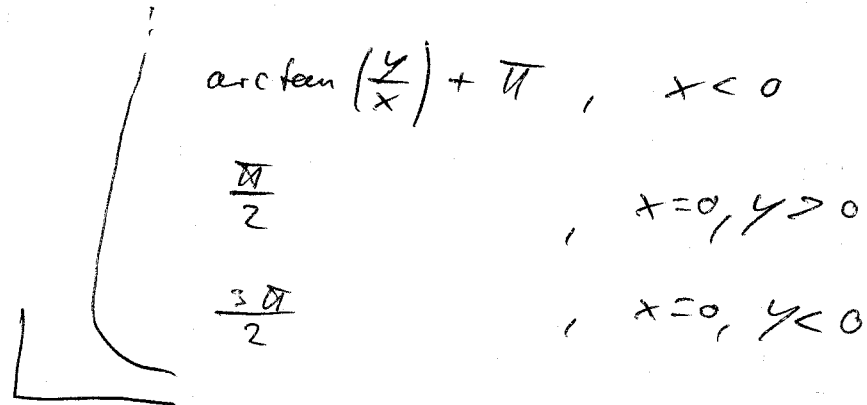 arctan (y/x) + π , x < 0
π/2 , x=0, y > 0
3π/2 , x=0, y < 0